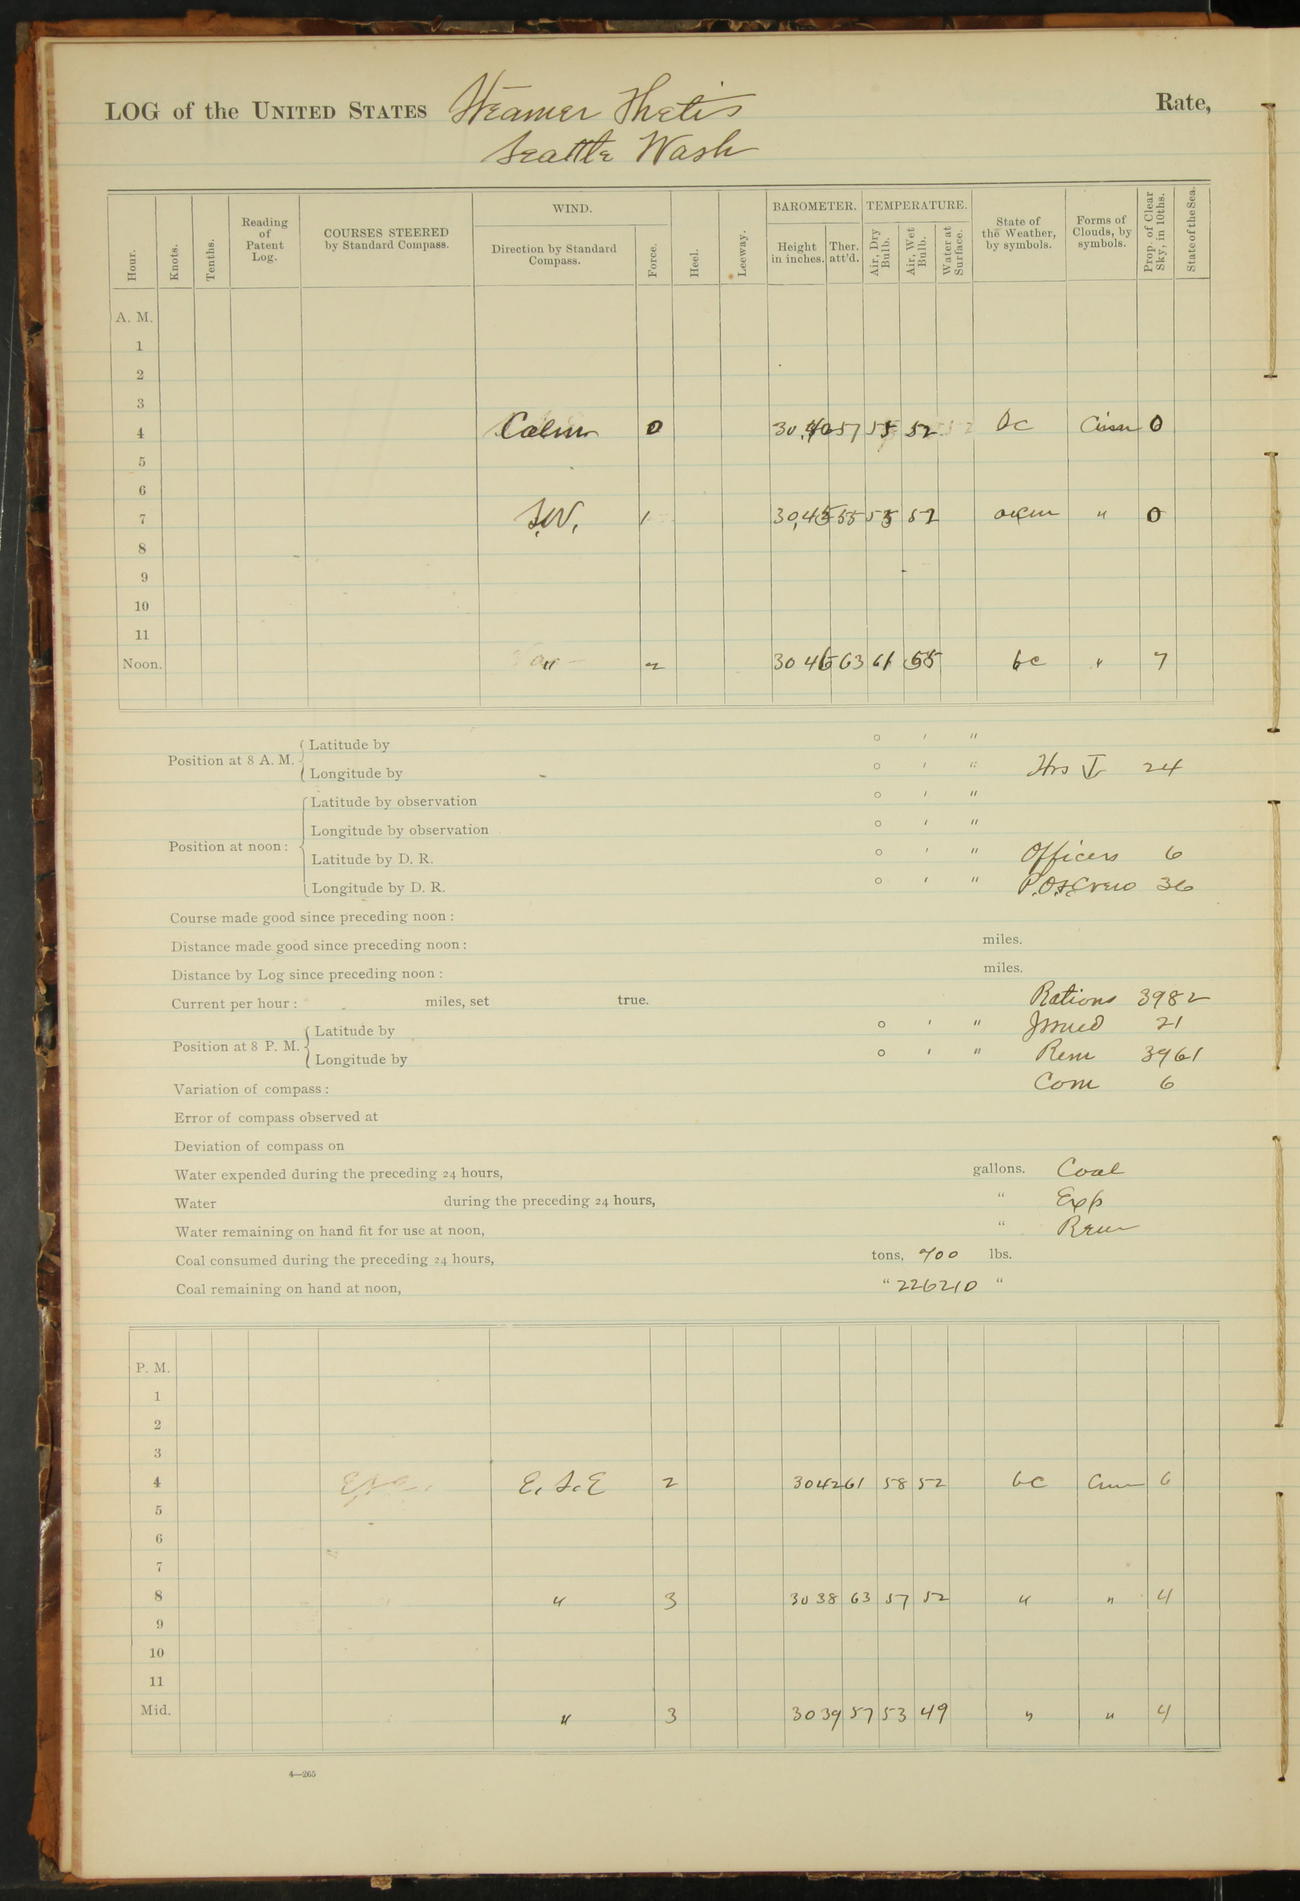 LOG of the UNITED STATES Steamer Thetis Rate,
Seattle Wash
Hour. Knots. Tenths. Reading of Patent Log. COURSES STEERED by Standard Compass. WIND. Direction by Standard Compass. Force. Heel. Leeway. BAROMETER. Height in inches. Ther. att'd. TEMPERATURE. Air, Dry Bulb. Air, Wet Bulb. Water at Surface. State of the Weather, by symbols. Forms of Clouds, by symbols. Prop. of Clear Sky, in 10ths. State of the Sea.
A. M.
1
2
3
4 Calm 0 30.40 57 55 52 bc 0
5
6
7 S.W. 1 30.45 55 53 52 " 0
8
9
10
11
Noon. " 2 30 46 63 61 55 bc " 7
Position at 8 A. M. Latitude by ° ' "
Longitude by ° ' " Hrs 24
Position at noon: Latitude by observation ° ' "
Longitude by observation ° ' "
Latitude by D. R. ° ' " Officers 6
Longitude by D. R. ° ' " P.O. & Crew 36
Course made good since preceding noon:
Distance made good since preceding noon: miles.
Distance by Log since preceding noon: miles.
Current per hour: miles, set true. Rations 3982
Position at 8 P. M. Latitude by ° ' " Issued 21
Longitude by ° ' " Rem 3961
Variation of compass: Com 6
Error of compass observed at
Deviation of compass on
Water expended during the preceding 24 hours, gallons. Coal
Water during the preceding 24 hours, " Exp
Water remaining on hand fit for use at noon, " Rem
Coal consumed during the preceding 24 hours, tons, 700 lbs.
Coal remaining on hand at noon, " 226210 "
P. M.
1
2
3
4 E. S. E 2 30 42 61 58 52 bc Cum 6
5
6
7
8 " 3 30 38 63 57 52 " " 4
9
10
11
Mid. " 3 30 39 57 53 49 " " 4
4—265